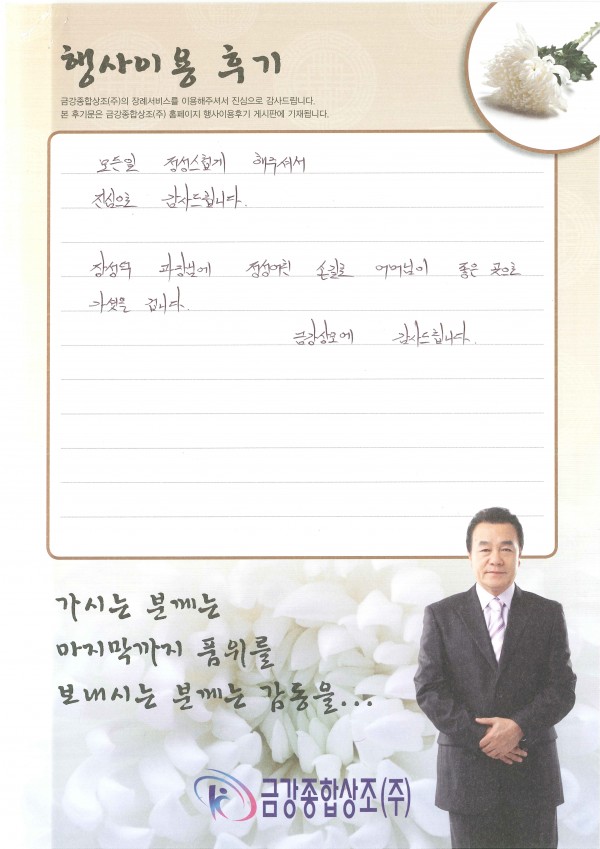 행사이용 후기
금강종합상조(주)의 장례서비스를 이용해주셔서 진심으로 감사드립니다.
본 후기문은 금강종합상조(주) 홈페이지 행사이용후기 게시판에 기재됩니다.
모든일 정성스럽게 해주셔서
진심으로 감사드립니다.
장성덕 과장님에 정성어린 손길로 어머님이 좋은 곳으로
가셨을 겁니다.
금강상조에 감사드립니다.
가시는 분께는
마지막까지 품위를
보내시는 분께는 감동을...
금강종합상조(주)